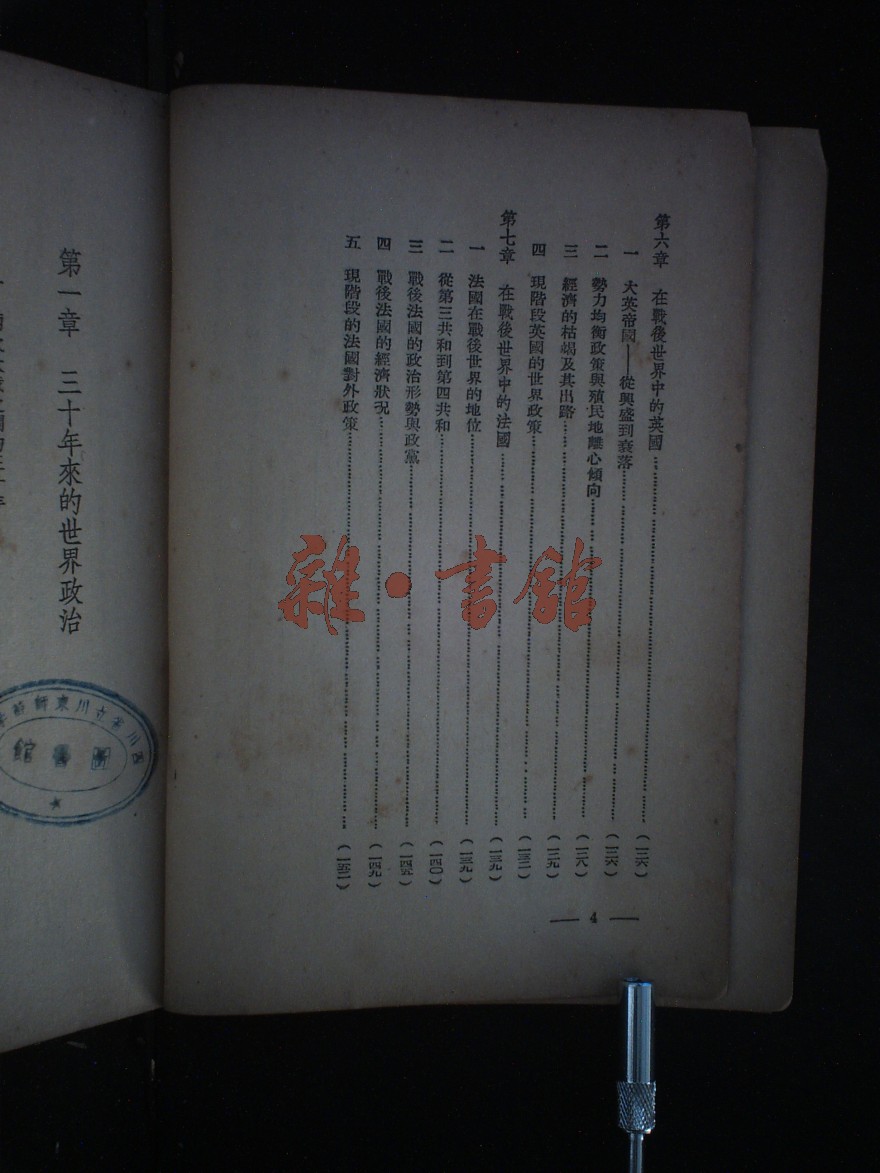 第六章　在戰後世界中的英國……（一二六）
一　大英帝國——從興盛到衰落……（一二六）
二　勢力均衡政策與殖民地離心傾向……（一二八）
三　經濟的枯竭及其出路……（一二九）
四　現階段英國的世界政策……（一三二）
第七章　在戰後世界中的法國……（一三九）
一　法國在戰後世界的地位……（一三九）
二　從第三共和到第四共和……（一四〇）
三　戰後法國的政治形勢與政黨……（一四五）
四　戰後法國的經濟狀況……（一四九）
五　現階段的法國對外政策……（一五二）
— 4 —
雜・書館
第一章　三十年來的世界政治
川東師範
圖書館